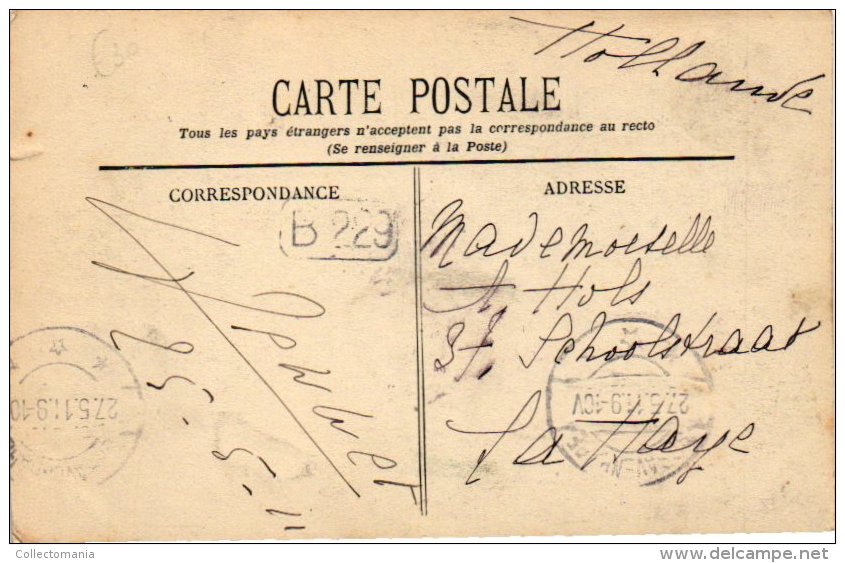 Hollande
CARTE POSTALE
Tous les pays étrangers n'acceptent pas la correspondance au recto
(Se renseigner à la Poste)
CORRESPONDANCE
ADRESSE
B 229
Mademoiselle
A Hols
Schoolstraat
La Haye
27.5.11.9-10V
27.5.11.9-10
Collectomania
delcampe.net